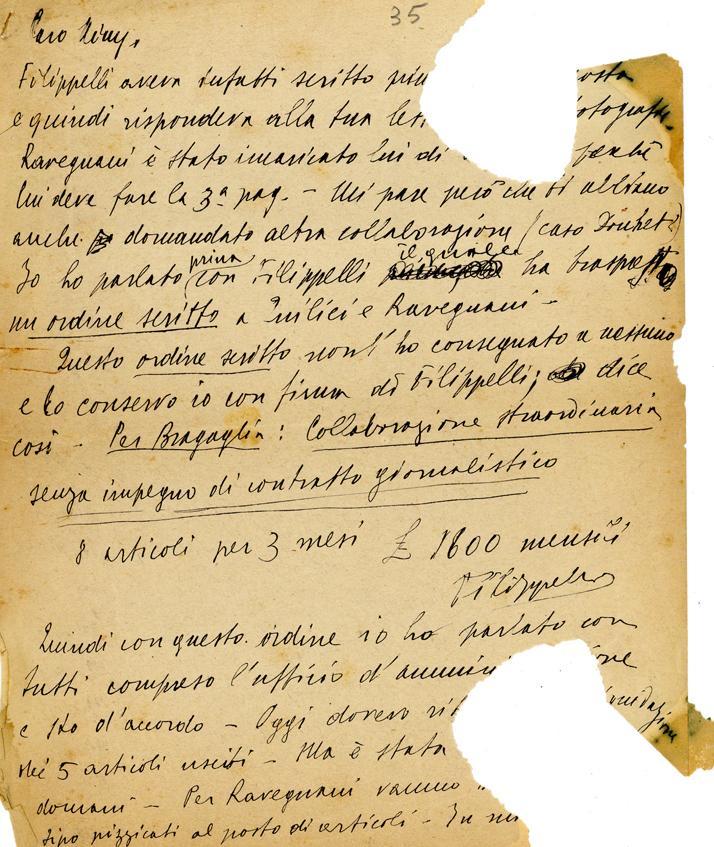 35
Caro
Filippelli aveva infatti scritto
e quindi rispondeva alla tua
Ravegnani è stato incaricato lui di perchè
lui deve fare la 3ª pag. - Mi pare però che ti abbiano
anche domandato altra collaborazione (caso
prima il quale
Io ho parlato con Filippelli ha
un ordine scritto a Quilici e Ravegnani -
Questo ordine scritto non l'ho consegnato a nessuno
e lo conservo io con firma di Filippelli; dice
così - Per Bragaglia: Collaborazione straordinaria
senza impegno di contratto giornalistico
8 articoli per 3 mesi £ 1600 mensili
Filippelli
Quindi con questo ordine io ho parlato con
tutti compreso l'ufficio d'
e sto d'accordo - Oggi dovevo
dei 5 articoli usciti - Ma è stata
domani - Per Ravegnani vanno
tipo pizzicati al posto di articoli - In